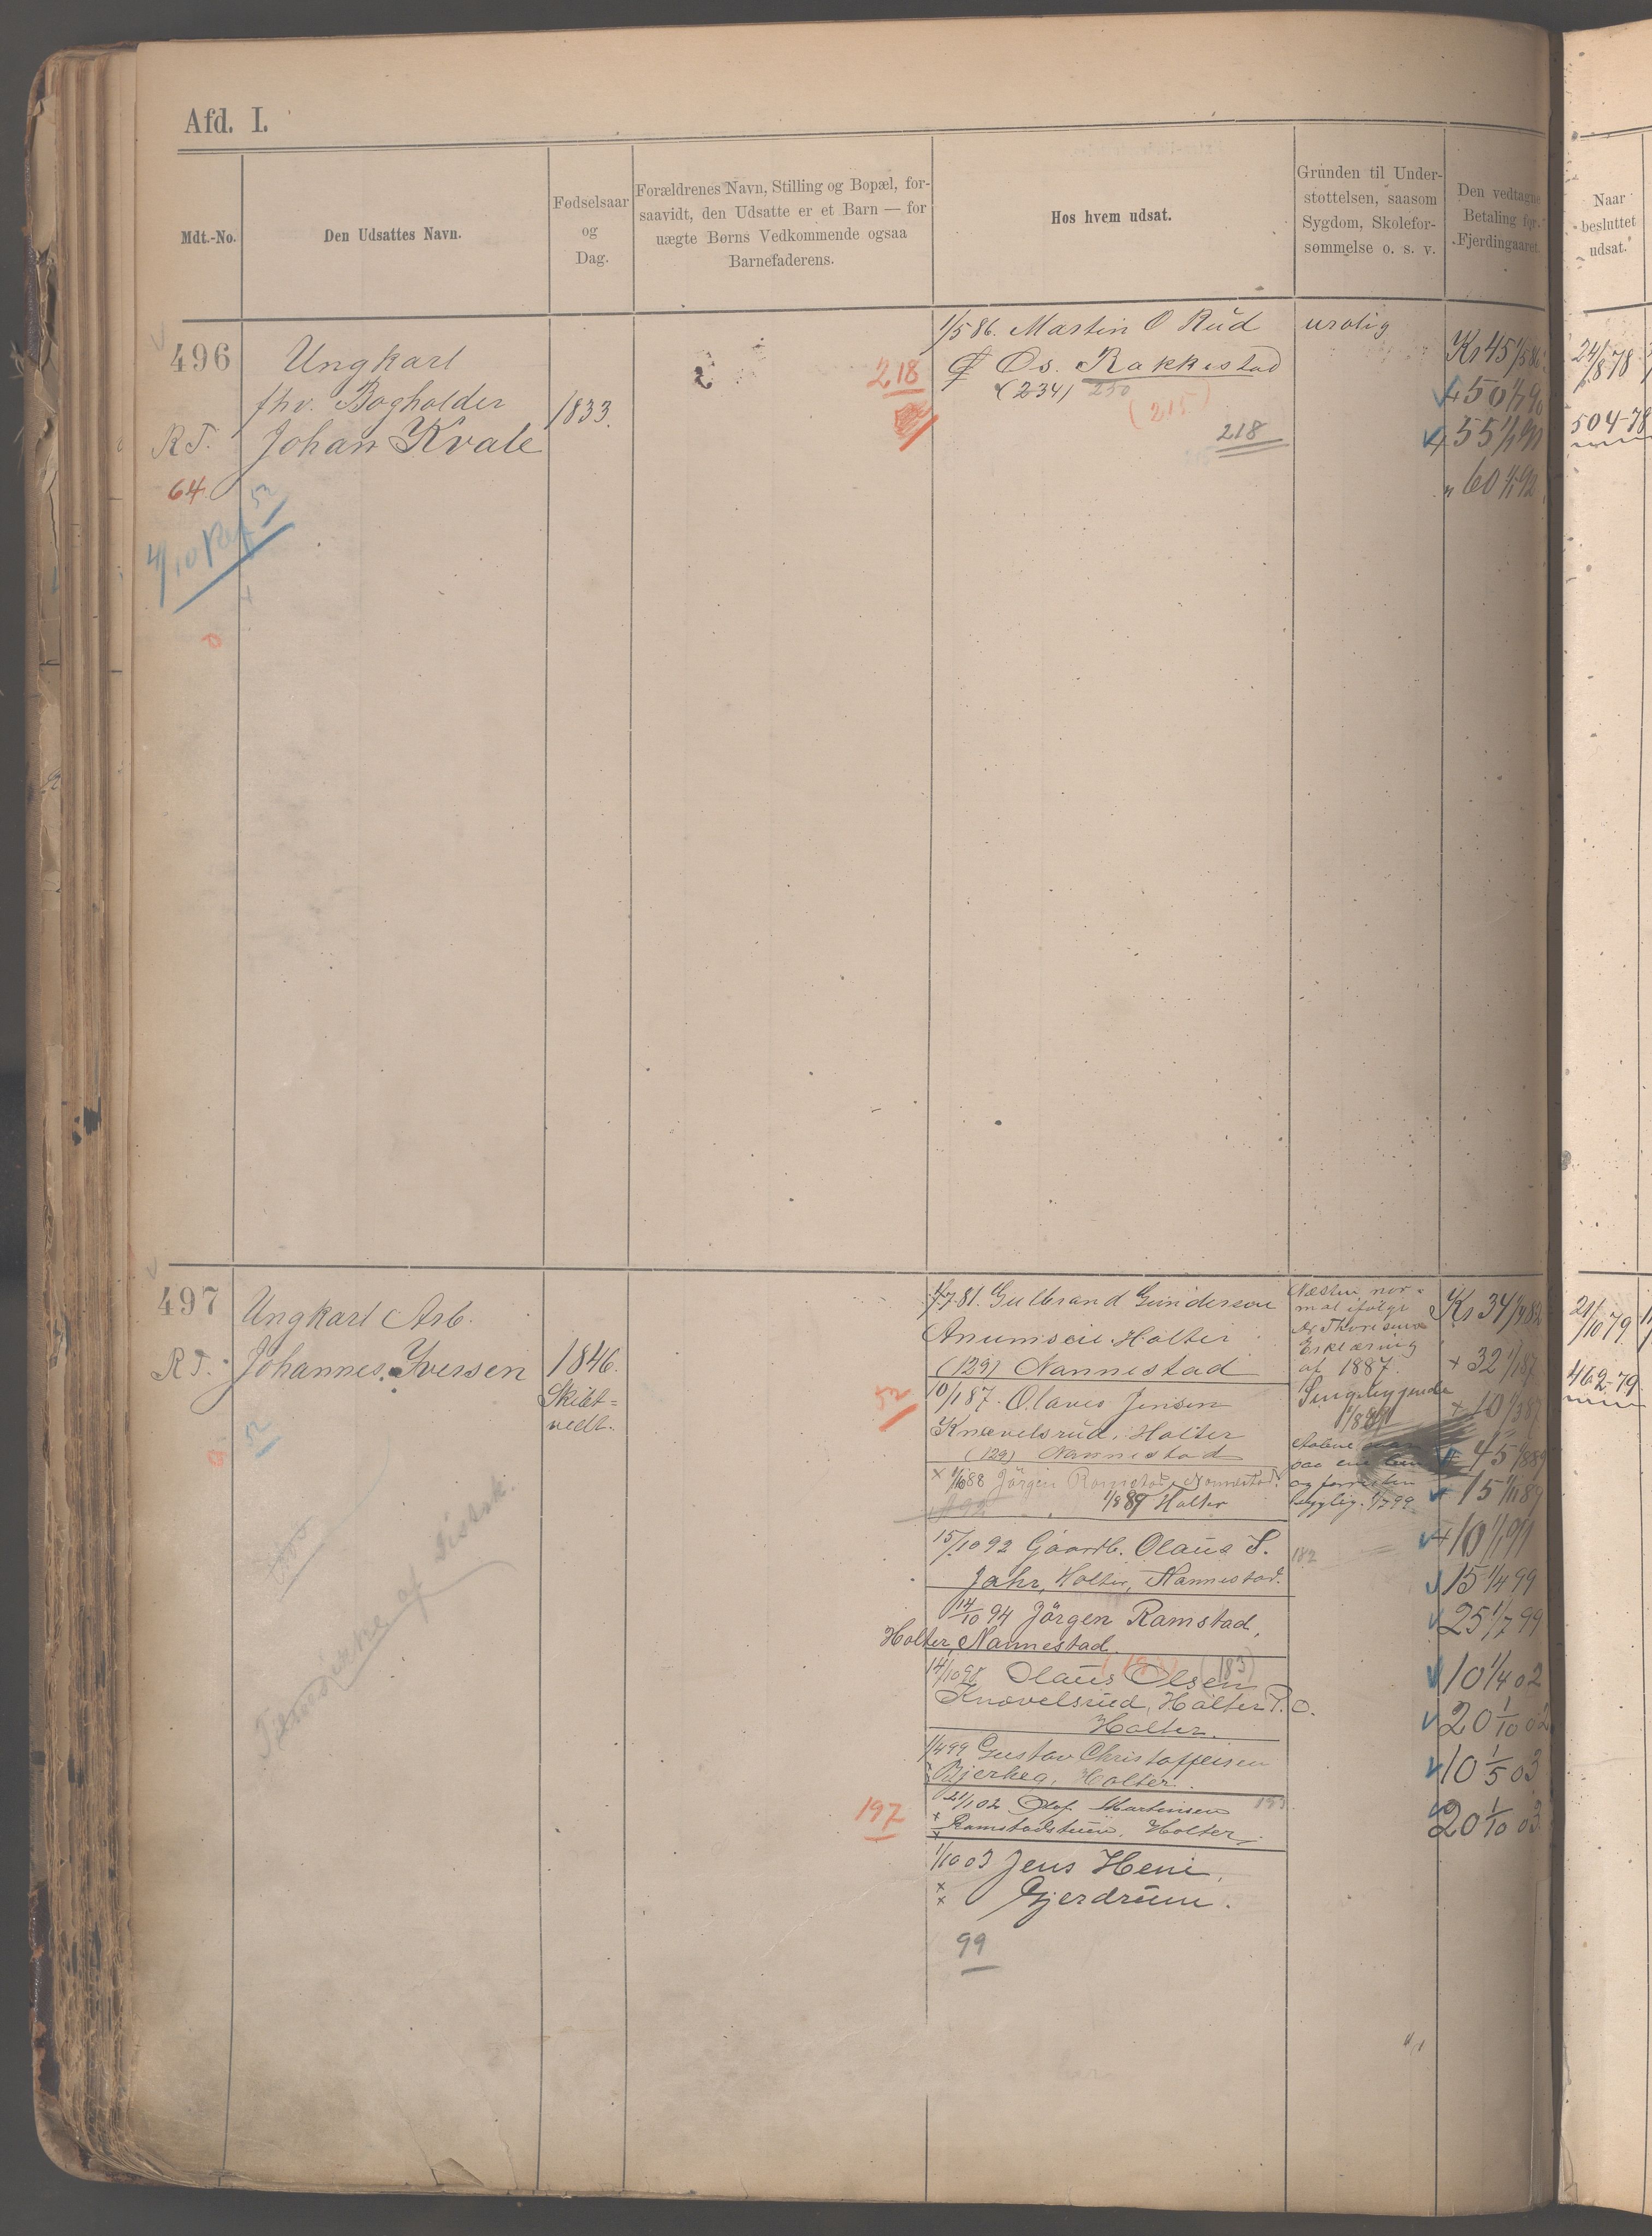 Afd. I.
Mdt.-No.
Den Udsattes Navn.
Fødselsaar
og
Dag.
Forældrenes Navn, Stilling og Bopæl, for-
saavidt, den Udsatte er et Barn — for
uægte Børns Vedkommende ogsaa
Barnefaderens.
Hos hvem udsat.
Grunden til Under-
støttelsen, saasom
Sygdom, Skolefor-
sømmelse o. s. v.
Den vedtagne
Betaling for
Fjerdingaaret.
Naar
besluttet
udsat.
496
Ungkarl
fhv. Bogholder
R.T. Johan Kvale
64
52
1833.
218
1/5 86. Martin O Rud
Øs. Rakkestad
(234) 250
(215)
218
urolig
Kr 45 1/5 86
50 1/1 90
55 1/1 90
" 60 1/1 92
24/8 78
504-78
497
Ungkarl Arb.
R.T. Johannes Iversen
52
1846.
Skibt=
vedt.
52
197
1/7 81. Gulbrand Gunderson
Holter
(129) Nannestad
10/1 87. Olaves Jensen
Knævelsrud, Holter
(129) Nannestad
1/10 88 Jörgen Ramstad, Nannestad.
1/8 89 Holter
15/10 92 Gaardb. Olaus S.
Jahr, Holter, Nannestad.
14/10 94 Jörgen Ramstad,
Holter, Nannestad.
(183)
14/10 98 Olaus Olsen
Knævelsrud, Holter P.O.
Holter.
1/4 99 Gustav Christoffersen
Bjerkeg, Holter.
21/1 02 Olof Martinsen
Ramstadstuen, Holter,
1/10 03 Jens Heni,
Gjerdrum.
99
Næsten nor-
mal ifølge
Erklæring
af 1887.
Sengeliggende
182
Kr 34 1/1 82
+ 32 1/1 87
+ 10 1/3 87
45 1/8 89
15 1/11 89
10 1/1 91
15 1/4 99
25 1/7 99
10 1/4 02
20 1/10 02
10 1/5 03
20 1/10 03
21/10 79
462-79